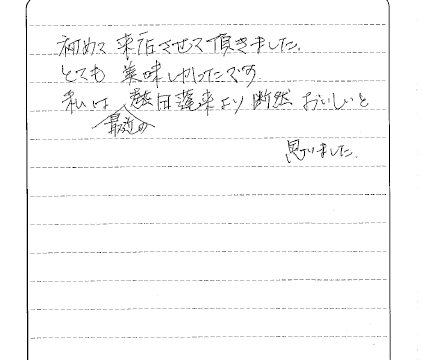 初めて来店させて頂きました。
とても美味しかったです
私は最近の蓬来より断然おいしいと
思いました。